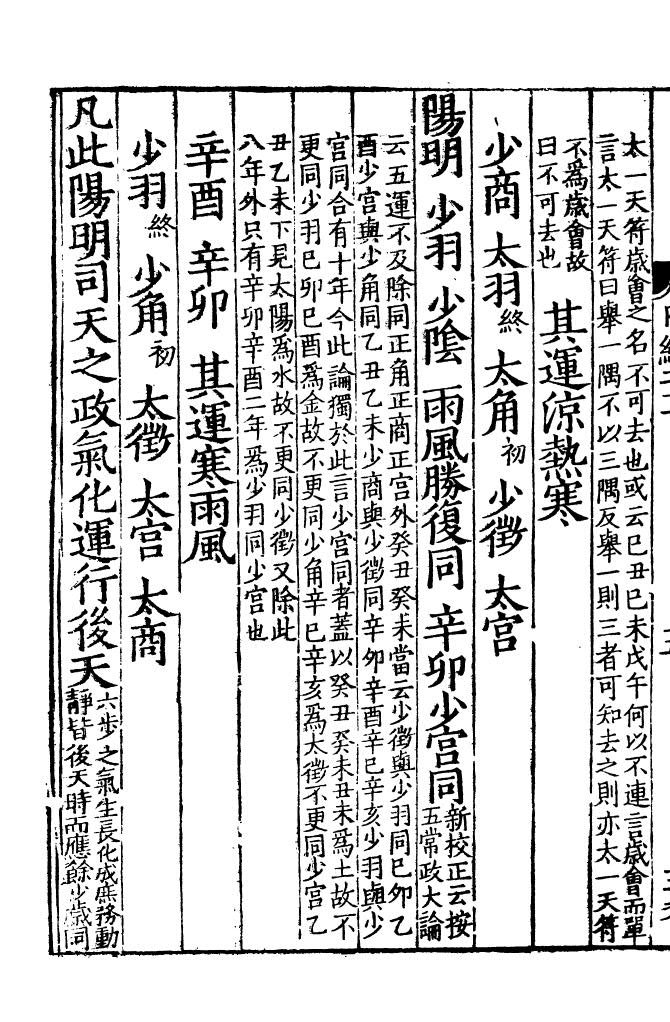 太一天符歲會之名不可去也或云已丑已未戊午何以不連言歲會而單
言太一天符曰舉一隅不以三隅反舉一則三者可知去之則亦太一天符
不爲歲會故
曰不可去也
其運涼熱寒
少商 太羽終 太角初 少徵 太宮
陽明 少羽 少陰 雨風勝復同 辛卯少宮同
新校正云按
五常政大論
云五運不及除同正角正商正宮外癸丑癸未當云少徵與少羽同已卯乙
酉少宮與少角同乙丑乙未少商與少徵同辛卯辛酉辛巳辛亥少羽與少
宮同合有十年今此論獨於此言少宮同者蓋以癸丑癸未丑未爲土故不
更同少羽已卯已酉爲金故不更同少角辛巳辛亥爲太徵不更同少宮乙
丑乙未下見太陽爲水故不更同少徵又除此
八年外只有辛卯辛酉二年爲少羽同少宮也
辛酉 辛卯 其運寒雨風
少羽終 少角初 太徵 太宮 太商
凡此陽明司天之政氣化運行後天
六步之氣生長化成庶務動
靜皆後天時而應餘少歲同